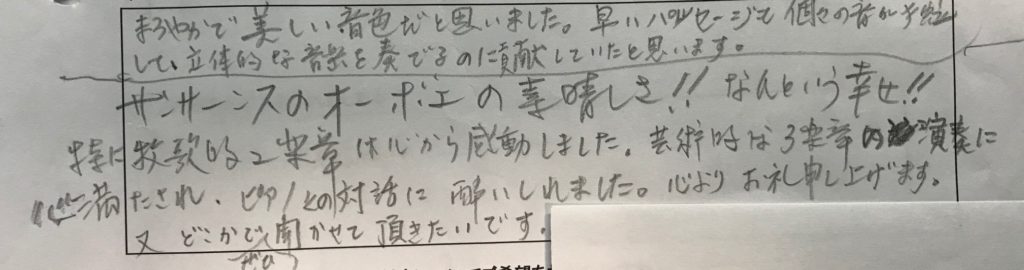 まろやかで美しい音色だと思いました。早いパッセージで個々の音が
して、立体的な音楽を奏でるのに貢献していたと思います。
サンサーンスのオーボエの素晴しさ!! なんという幸せ!!
特に牧歌的2楽章は心から感動しました。芸術的な3楽章の演奏に
心満たされ、ピアノとの対話に酔いしれました。心よりお礼申し上げます。
又どこかでぜひ聞かせて頂きたいです。